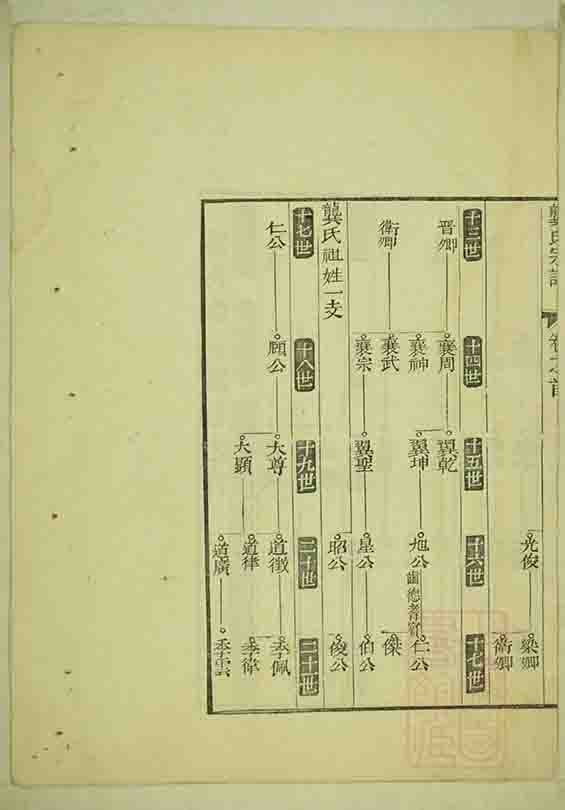 龔氏宗譜
卷之首
光俊
梁卿
衛卿
十三世
十四世
十五世
十六世
十七世
晋卿
襄周
襄神
翼乾
翼坤
旭公
仁公
傑
衛卿
襄武
襄宗
翼聖
星公
伯公
昭公
俊公
龔氏祖姓一支
十七世
十八世
十九世
二十世
二十世
仁公
願公
大尊
道徵
季佩
大顯
道律
季偉
道廣